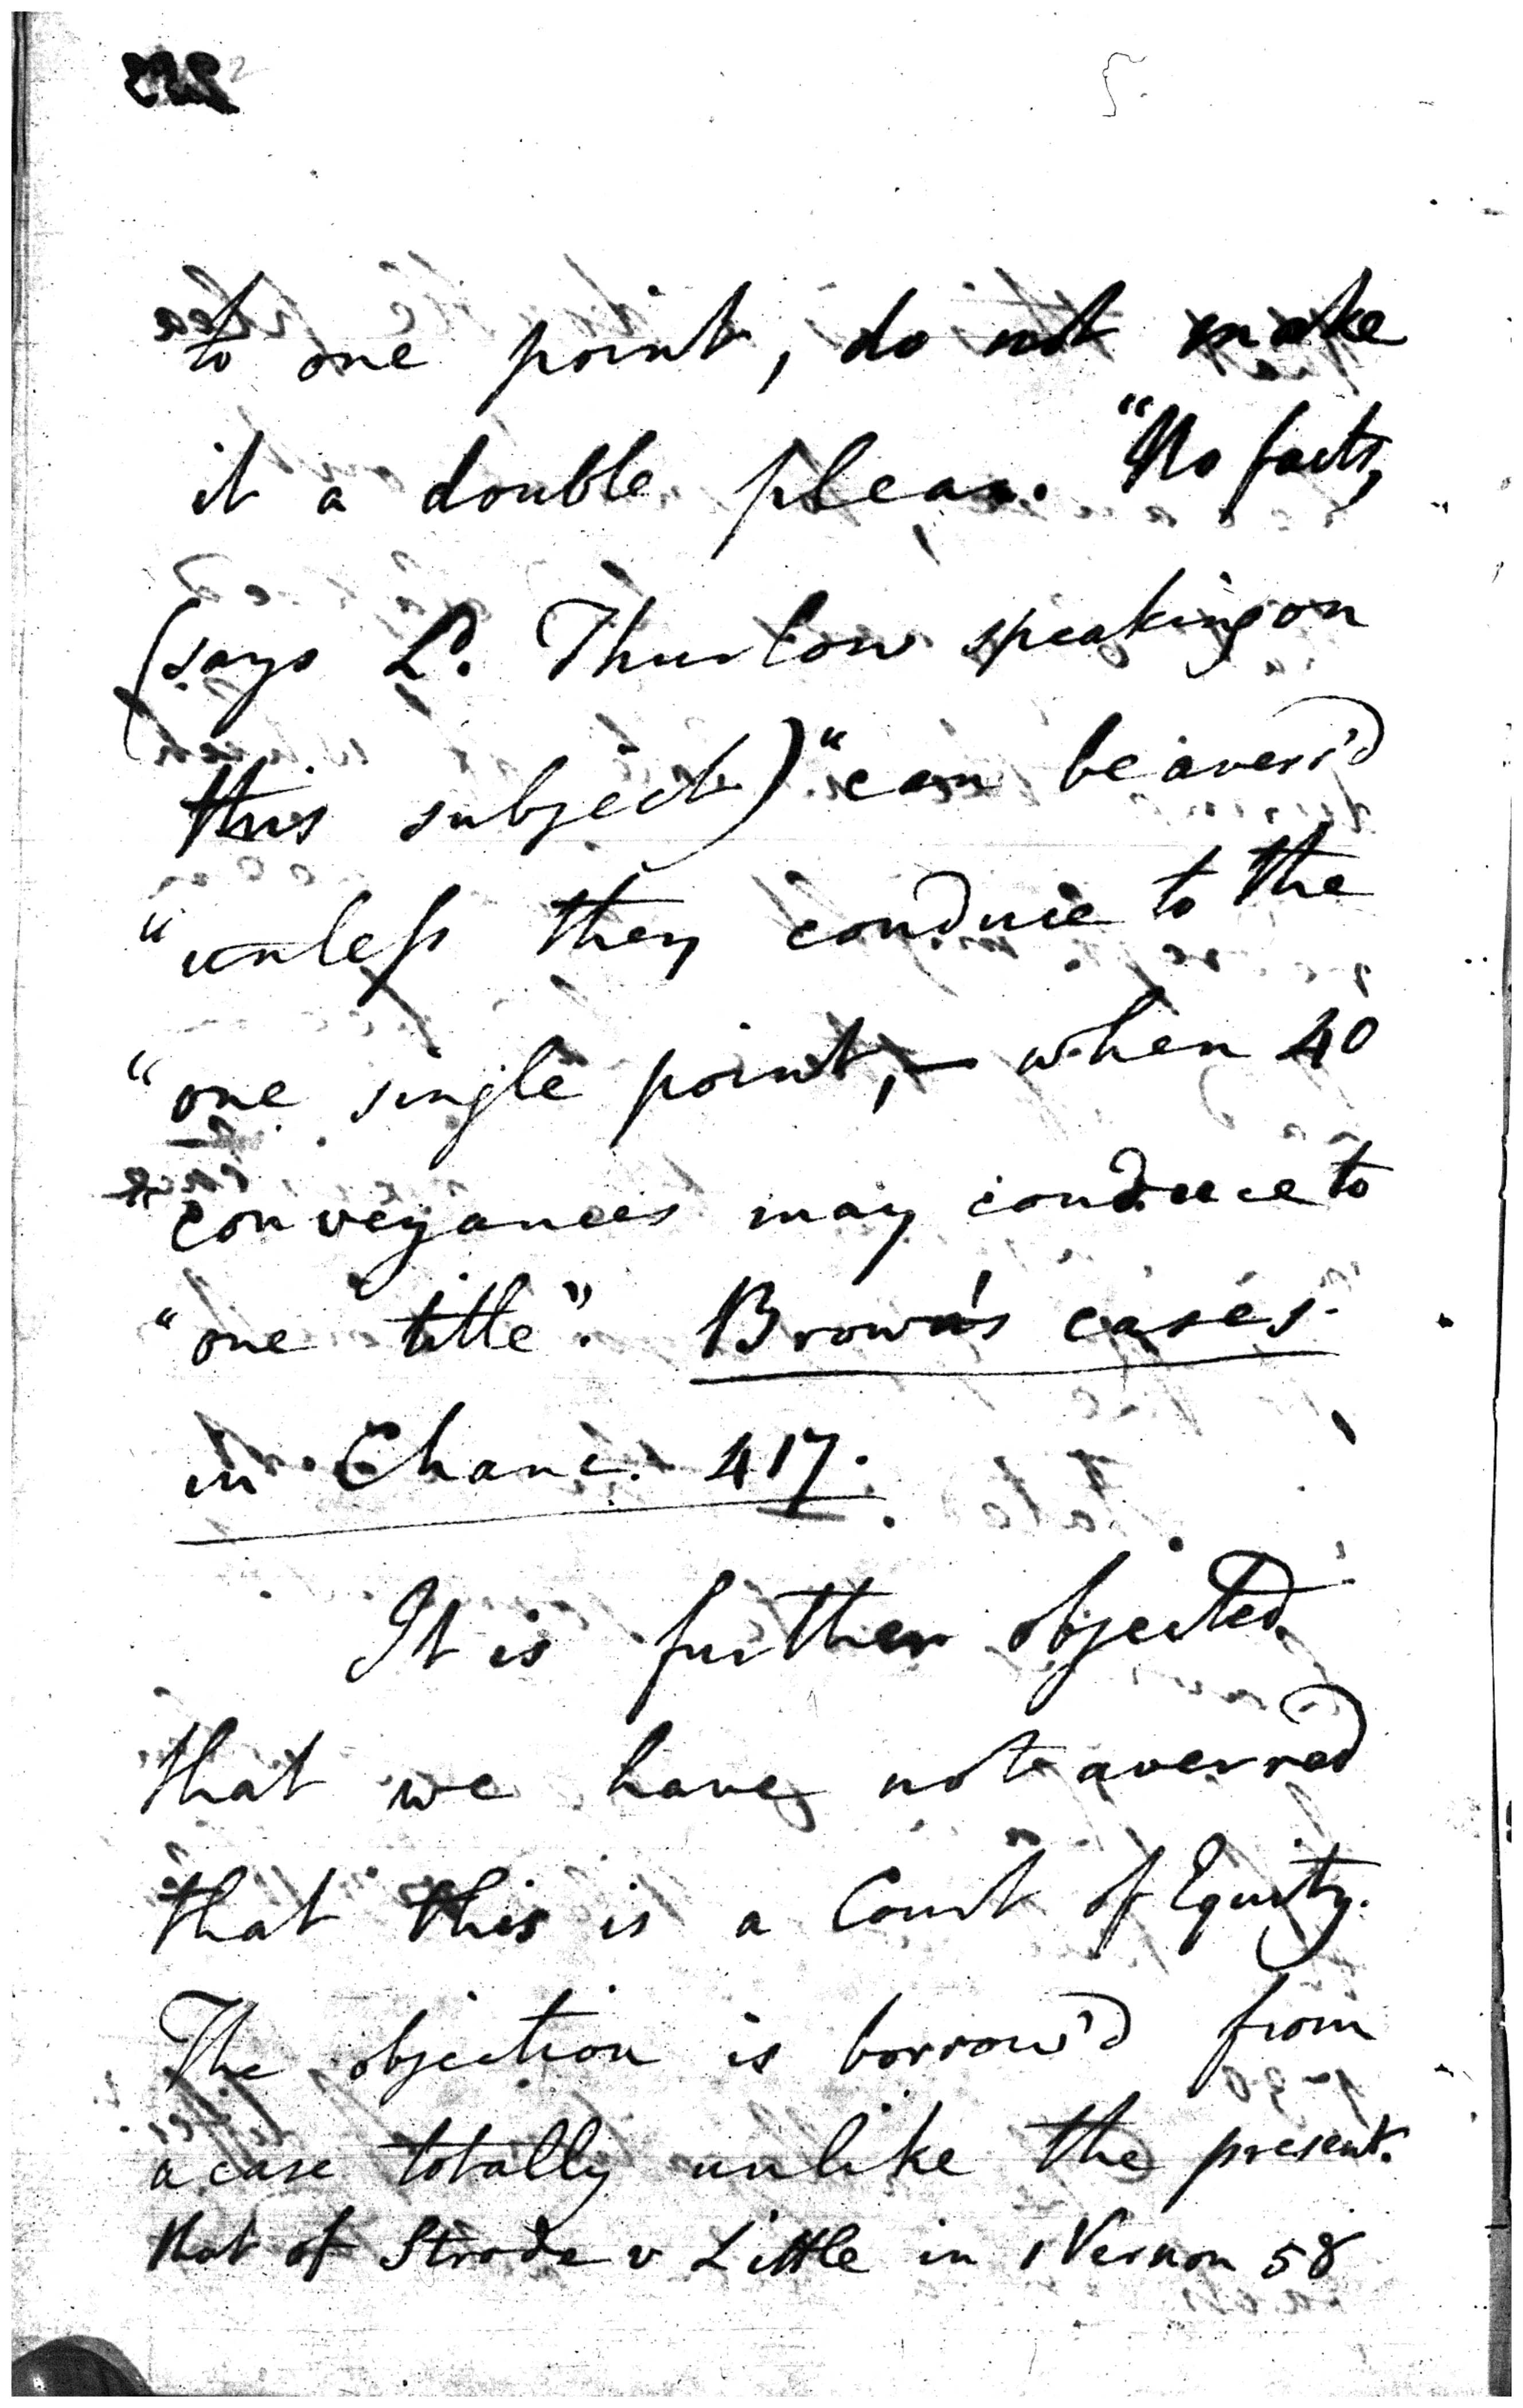 5.
to one point, do not make
it a double plea. "No facts,
(says Ld. Thurlow speaking on
this subject) "can be averr'd
"unless they conduce to the
"one single point, – when 40
"conveyances may conduce to
"one title". Brown's cases
in Chanc. 417.
It is further objected
that we have not averred
that this is a Court of Equity.
The objection is borrow'd from
a case totally unlike the present.
that of Strode v Little in 1 Vernon 58